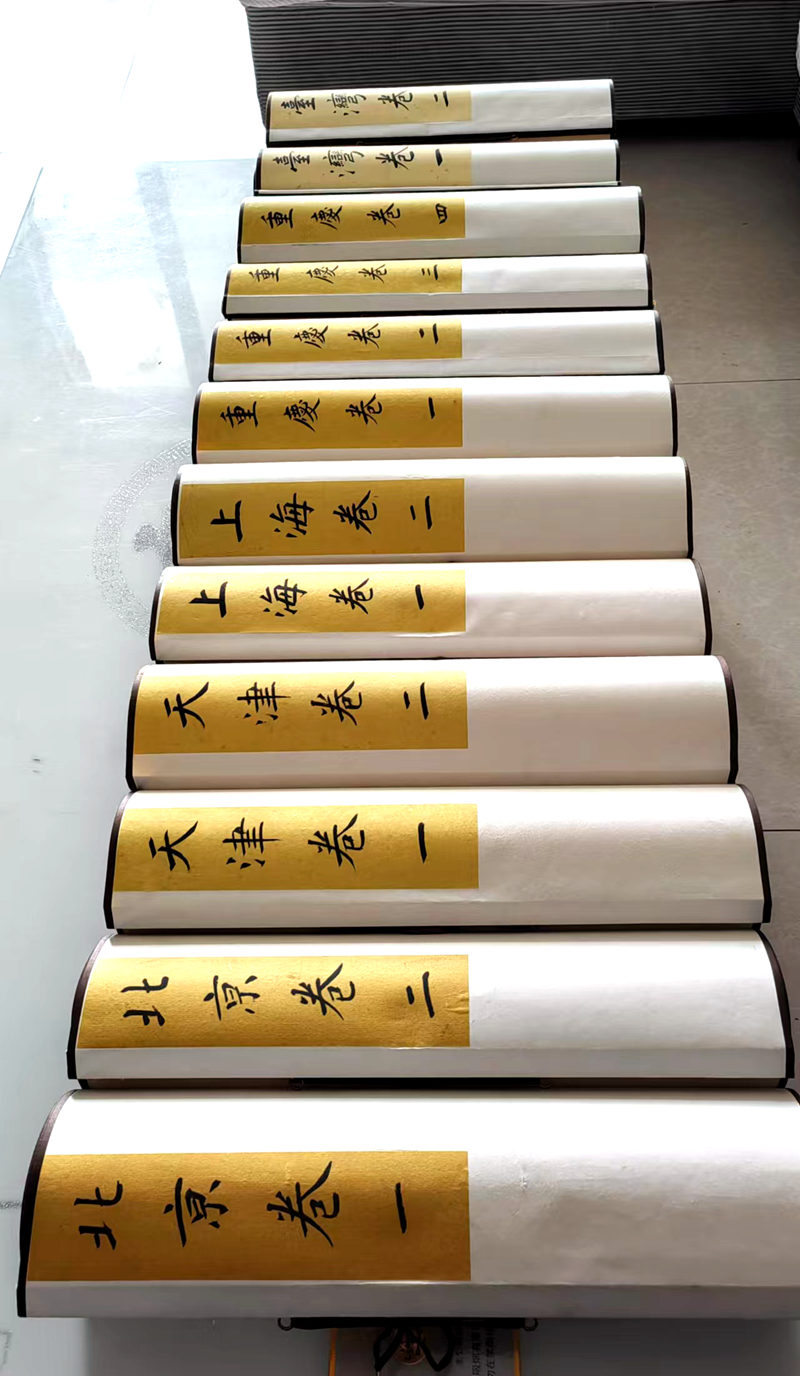 臺灣卷二
臺灣卷一
重慶卷四
重慶卷三
重慶卷二
重慶卷一
上海卷二
上海卷一
天津卷二
天津卷一
北京卷二
北京卷一